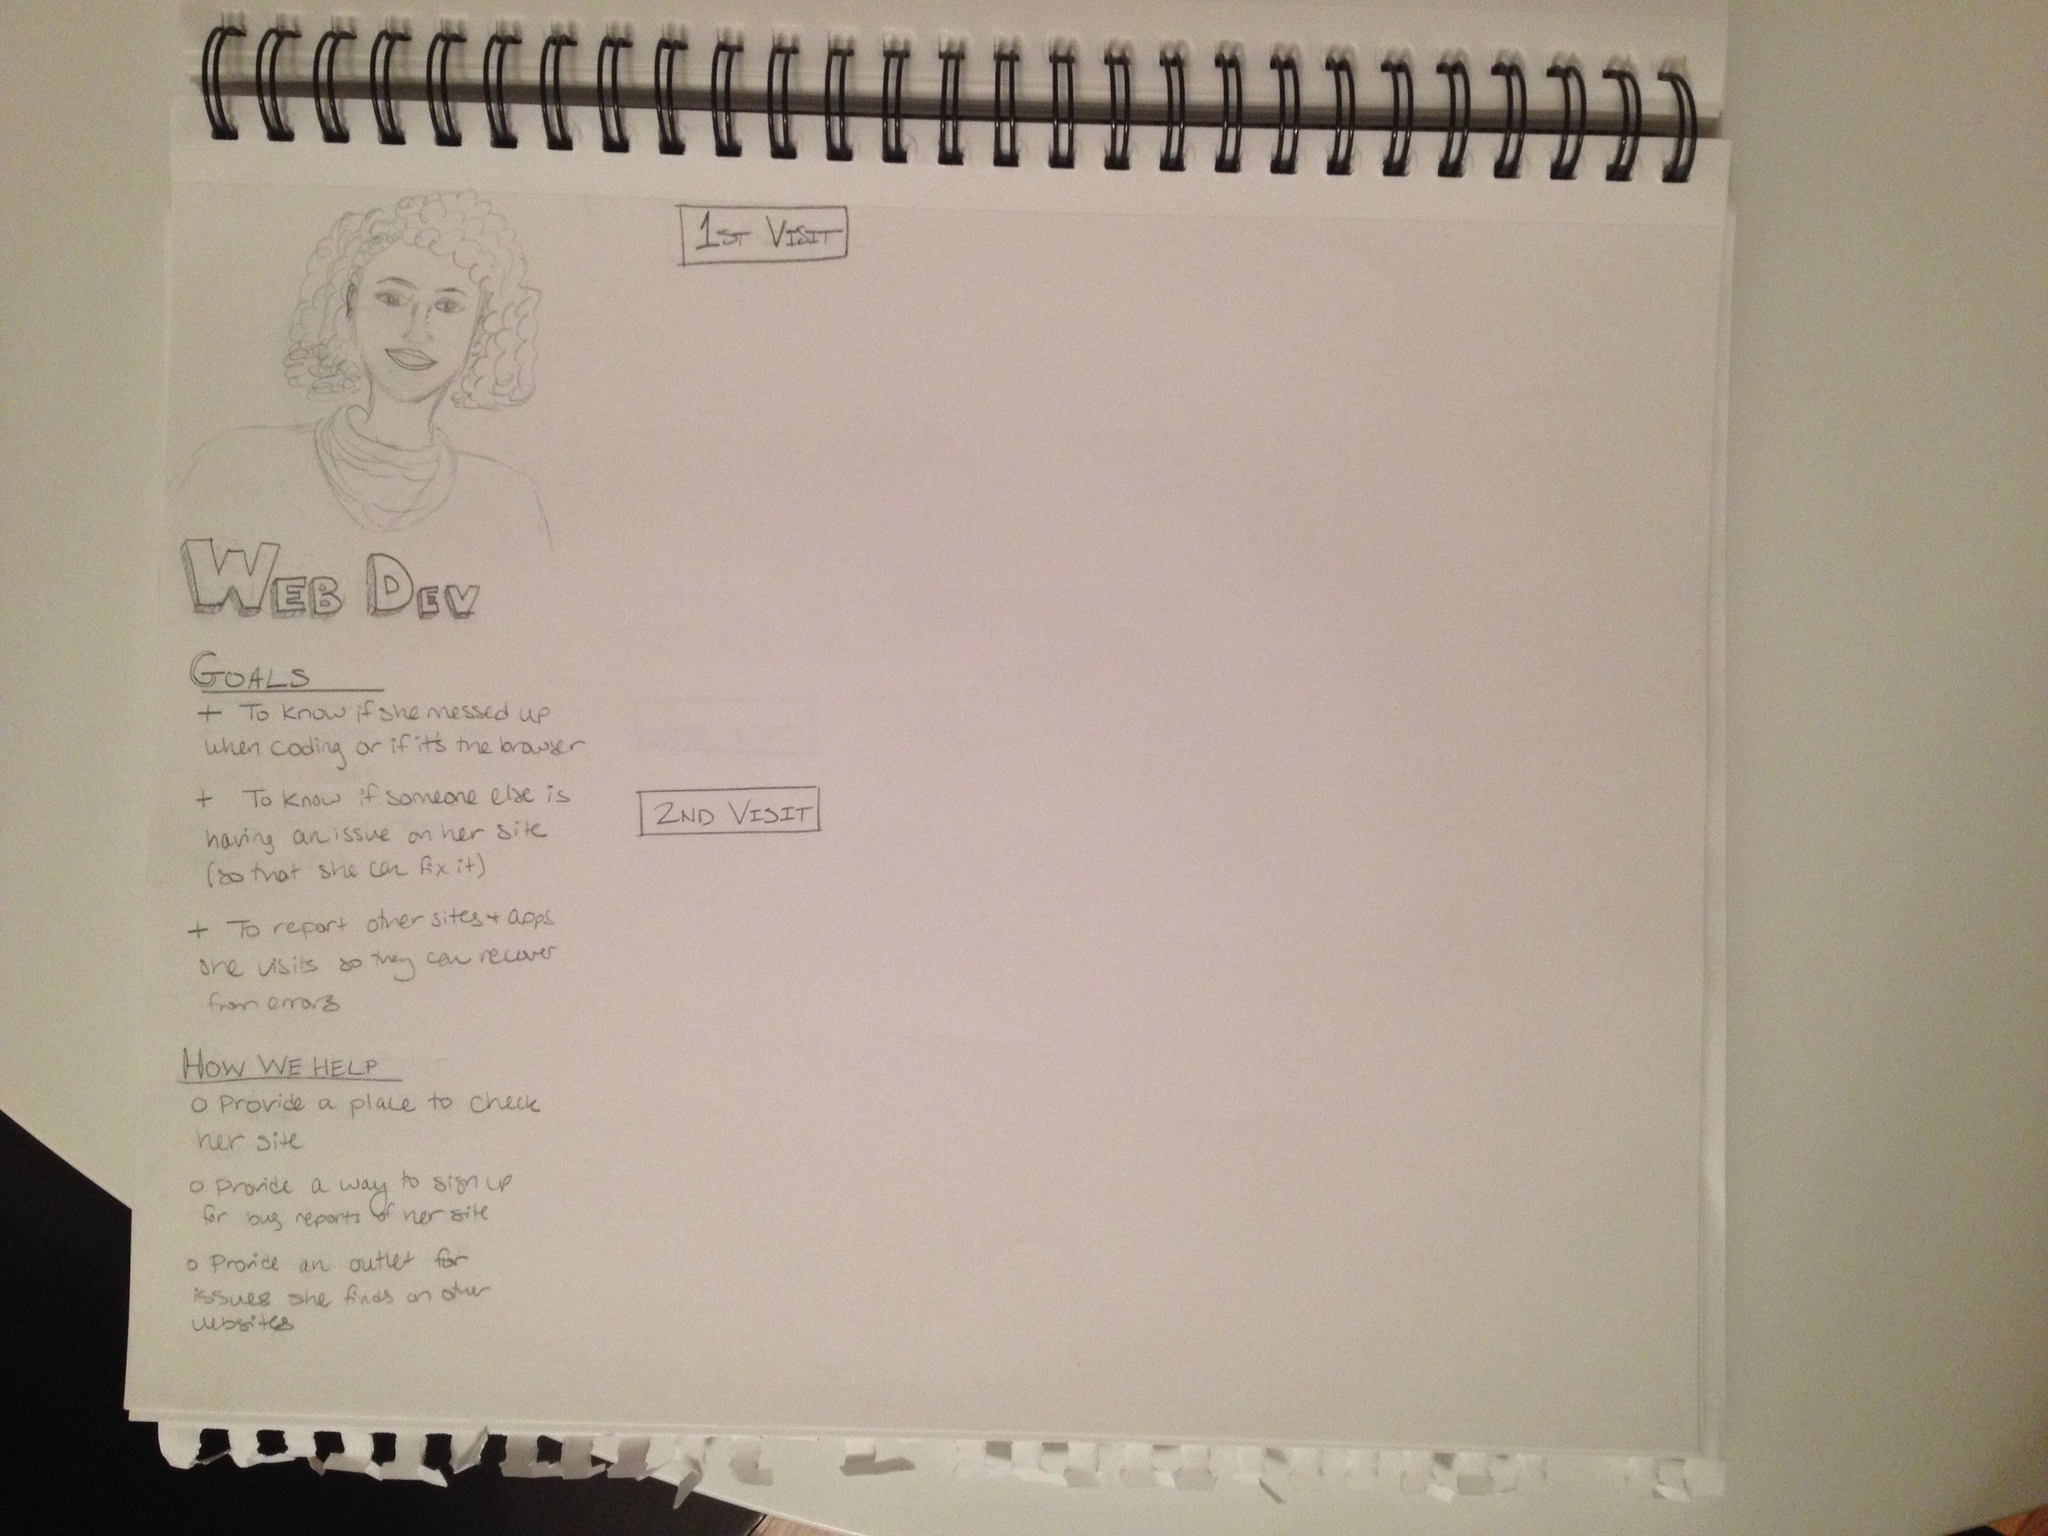 1ST VISIT
WEB DEV
GOALS
+ To know if she messed up
when coding or if it's the browser
+ To know if someone else is
having an issue on her site
(so that she can fix it)
+ To report other sites + apps
she visits so they can recover
from errors
HOW WE HELP
o Provide a place to check
her site
o Provide a way to sign up
for bug reports of her site
o Provide an outlet for
issues she finds on other
websites
2ND VISIT